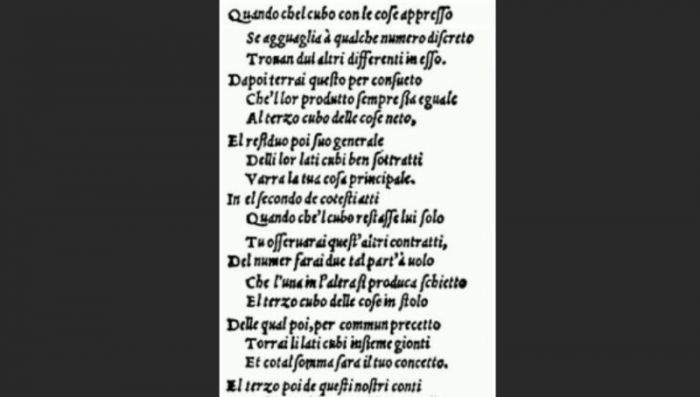 Quando chel cubo con le cose appresso
Se agguaglia à qualche numero discreto
Trouan dui altri differenti in esso.
Dapoi terrai questo per consueto
Che'l lor produtto sempre sia eguale
Al terzo cubo delle cose neto,
El residuo poi suo generale
Delli lor lati cubi ben sottratti
Varra la tua cosa principale.
In el secondo de cotesti atti
Quando che'l cubo restasse lui solo
Tu osseruarai quest'altri contratti,
Del numer farai due tal part'à uolo
Che l'una in l'altra si produca schietto
El terzo cubo delle cose in stolo
Delle qual poi, per commun precetto
Torrai li lati cubi insieme gionti
Et cotal somma sara il tuo concetto.
El terzo poi de questi nostri conti